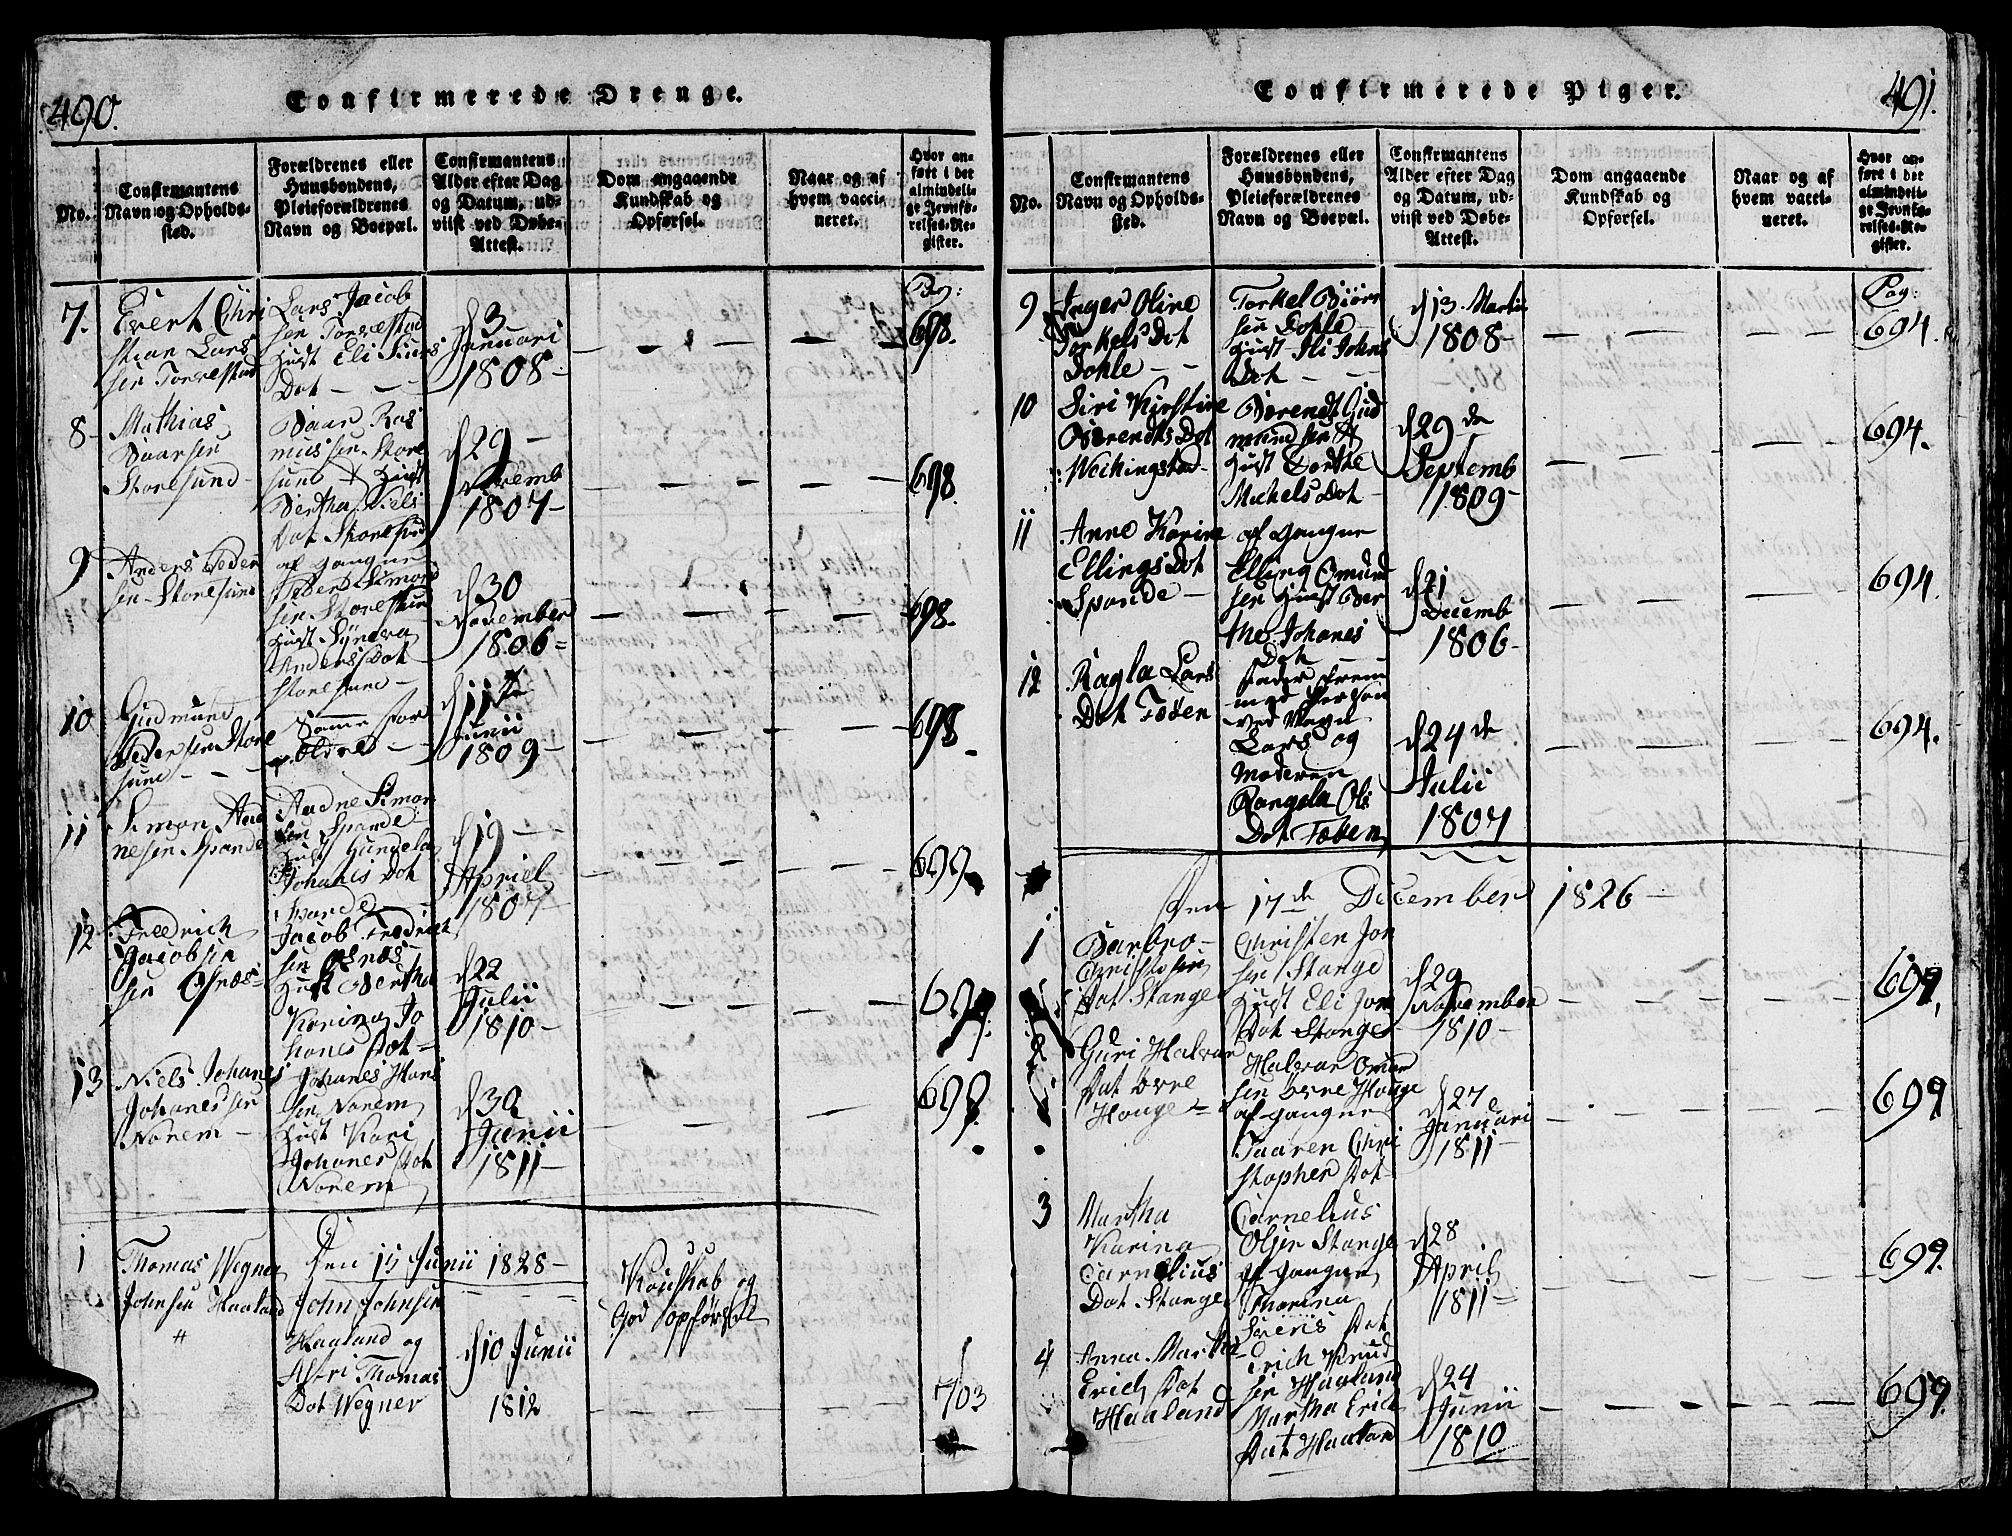 490.
Confirmerede Drenge.
No.
Confirmantens
Navn og Opholds-
sted.
Forældrenes eller
Huusbondens,
Pleieforældrenes
Navn og Boepæl.
Confirmantens
Alder efter Dag
og Datum, ud-
viist ved Døbe-
Attest.
Dom angaaende
Kundskab og
Opførsel.
Naar og af
hvem vacci-
neret.
Hvor an-
ført i det
almindeli-
ge Jevnfø-
relses-Re-
gister.
Pag:
7.
Evert Chri
stian Lars
sen Torvestad
Lars Jacob
sen Torvestad
Hust Eli
Dot
d 3
Januari
1808
698.
8
Mathias
Baarsen
Storesund
Baar Ras
mussen Store
sund Hust
Bertha Niels
Dot Storesund
d 29
Novemb
1807
698.
9
Anders Peder
sen Storesund
af gangne
Peder Simond
sen Storesund
Hust Synava
Anders Dot
Storesund
d 30
November
1806
698.
10
Gudmund
Pedersen Store
sund
Samme For
ældre
d 11te
Junii
1809
698
11
Simon Aad
nesen Spande
Aadne Simon
sen Spande
Hust Gundela
Johanis Dot
Spande
d 19
Apriel
1807
699
12
Fredrich
Jacobsen
sen Osnæs
Jacob Fredrich
sen Osnæs
Hust Bertha
Karina Jo
hanes Dot
d 22
Julii
1810
699
13
Niels Johanes
Johanessen
Norem
Johanes Hans
sen Norem
Hust Kari
Johanes Dot
Norem
d 30
Junii
1811
699
1
Thomas Wegner
Johnsen Haaland
"
Den 15 Junii 1828
John Johnsen
Haaland og
Astri Thomas
Dot Wegner
d 10 Junii
1812
Kundskab og
God opførsel
703
Confirmerede Piger.
491.
No.
Confirmantens
Navn og Opholds-
sted.
Forældrenes eller
Huusbondens,
Pleieforældrenes
Navn og Boepæl.
Confirmantens
Alder efter Dag
og Datum, ud-
viist ved Døbe-
Attest.
Dom angaaende
Kundskab og
Opførsel.
Naar og af
hvem vacci-
neret.
Hvor an-
ført i det
almindeli-
ge Jevnfø-
relses-Re-
gister.
Pag:
9
Inger Oline
Torkels Dot
Dohle
Torkel Biørn
sen Dohle
Hust Sli Johns
Dot
d 13 Martii
1808
694.
10
Siri Kirstine
Berendts Dot
Weikingstad
Berendt Gud
mundsen
Hust Dorthe
Michels Dot
d 29 de
Septemb
1809
694.
11
Anne Karine
Ellings Dot
Spande
af gangne
Elling Omund
sen Hust Ber
the Johanes
Dot
d 21
Decemb
1806
694.
12
Ragla Lars
Dot Foøen
Fader frem
med Person
ved Navn
Lars og
Moderen
Rangela Ols
Dot Foøen
d 24 de
Julii
1807
694.
Den 17de December 1826
1
Barbro
Christen
Dot Stange
Christen Jon
sen Stange
Hust Eli Jon
Dot Stange
d 29
November
1810
699.
2
Guri Halvar
Dot Øvre
Houge
Halvar Omund
sen Øvre Houge
af gangne
Taaren Chri
stopher Dot
d 27 e
Januari
1811
699
3
Martha
Karina
Cornelius
Dot Stange
Cornelius
Olsen Stange
af gangne
Tharina
Sørens Dot
d 28
April
1811
699.
4
Anna Martha
Erich Dot
Haaland
Erich Knud
sen Haaland
Martha Erich
Dot Haaland
d 24
Junii
1810
699.